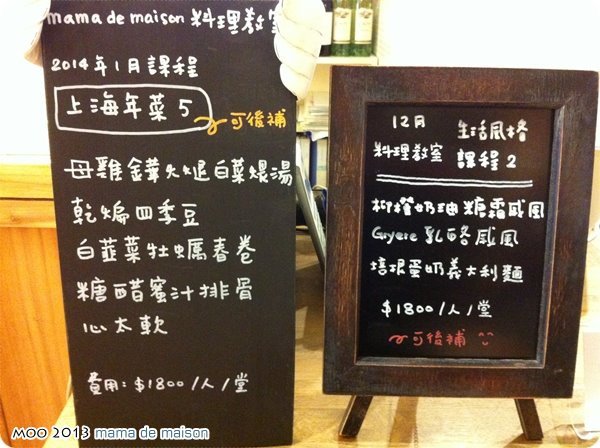 mama de maison 料理教室
2014年1月課程
上海年菜 5
可後補
母雞鏵火腿白菜煨湯
乾煸四季豆
白韮菜牡蠣春卷
糖醋蜜汁排骨
心太軟
費用:$1800/人/堂
12月 生活風格
料理教室 課程 2
檸檬奶油糖霜戚風
Gryere 乳酪戚風
培根蛋奶義大利麵
$1800/人/堂
可後補
MOO 2013 mama de maison